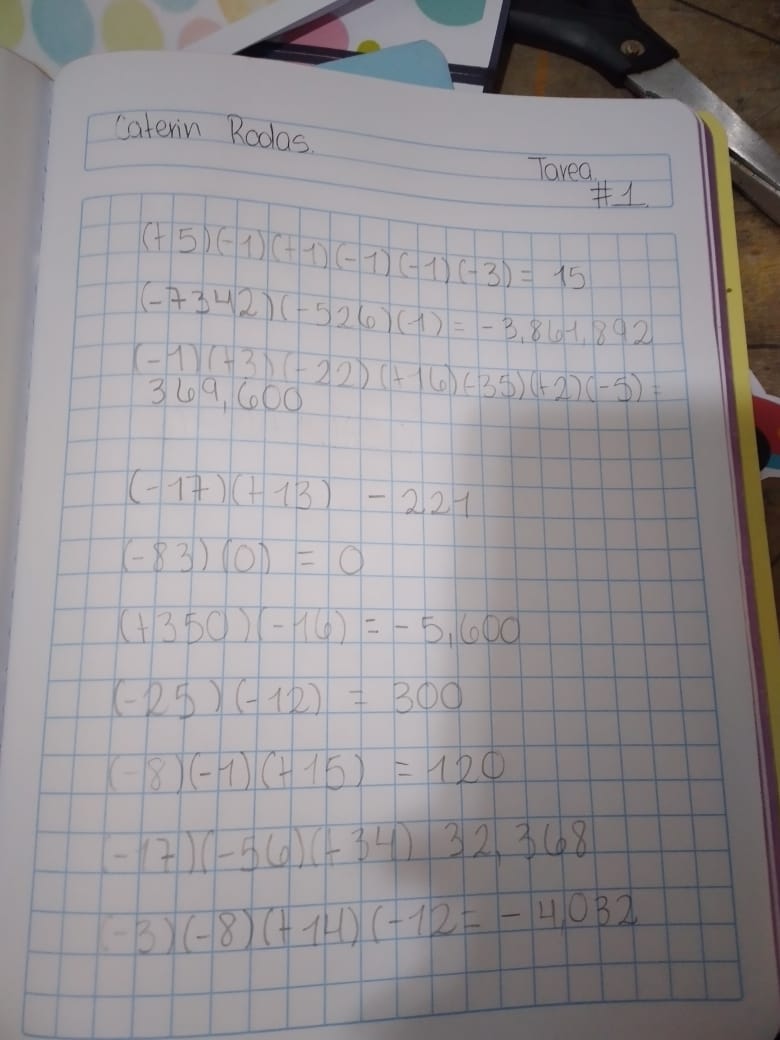 Caterin Rodas.
Tarea.
#1.
(+5)(-1)(+1)(-1)(-1)(-3) = 15
(-7342)(-526)(1) = -3,861,892
(-1)(+3)(-22)(+16)(-35)(+2)(-5) =
369,600
(-17)(+13) - 221
(-83)(0) = 0
(+350)(-16) = -5,600
(-25)(-12) = 300
(-8)(-1)(+15) = 120
(-17)(-56)(+34) 32,368
(-3)(-8)(+14)(-12 = -4,032